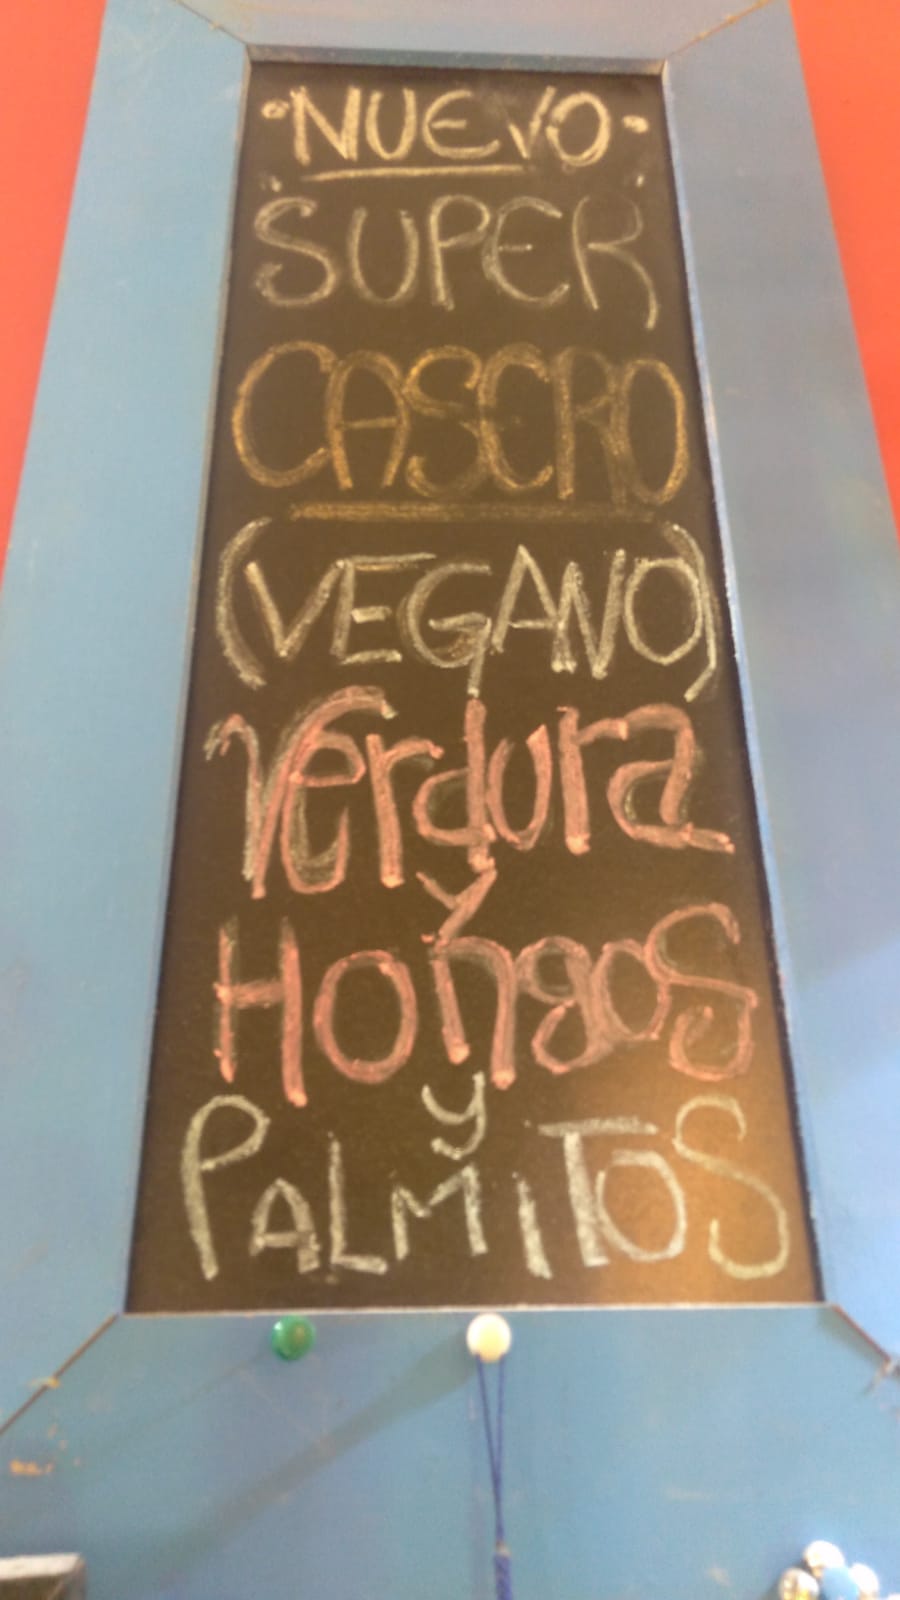 ·NUEVO·
SUPER
CASERO
(VEGANO)
Verdura
y
HongoS
y
PALMiTOS